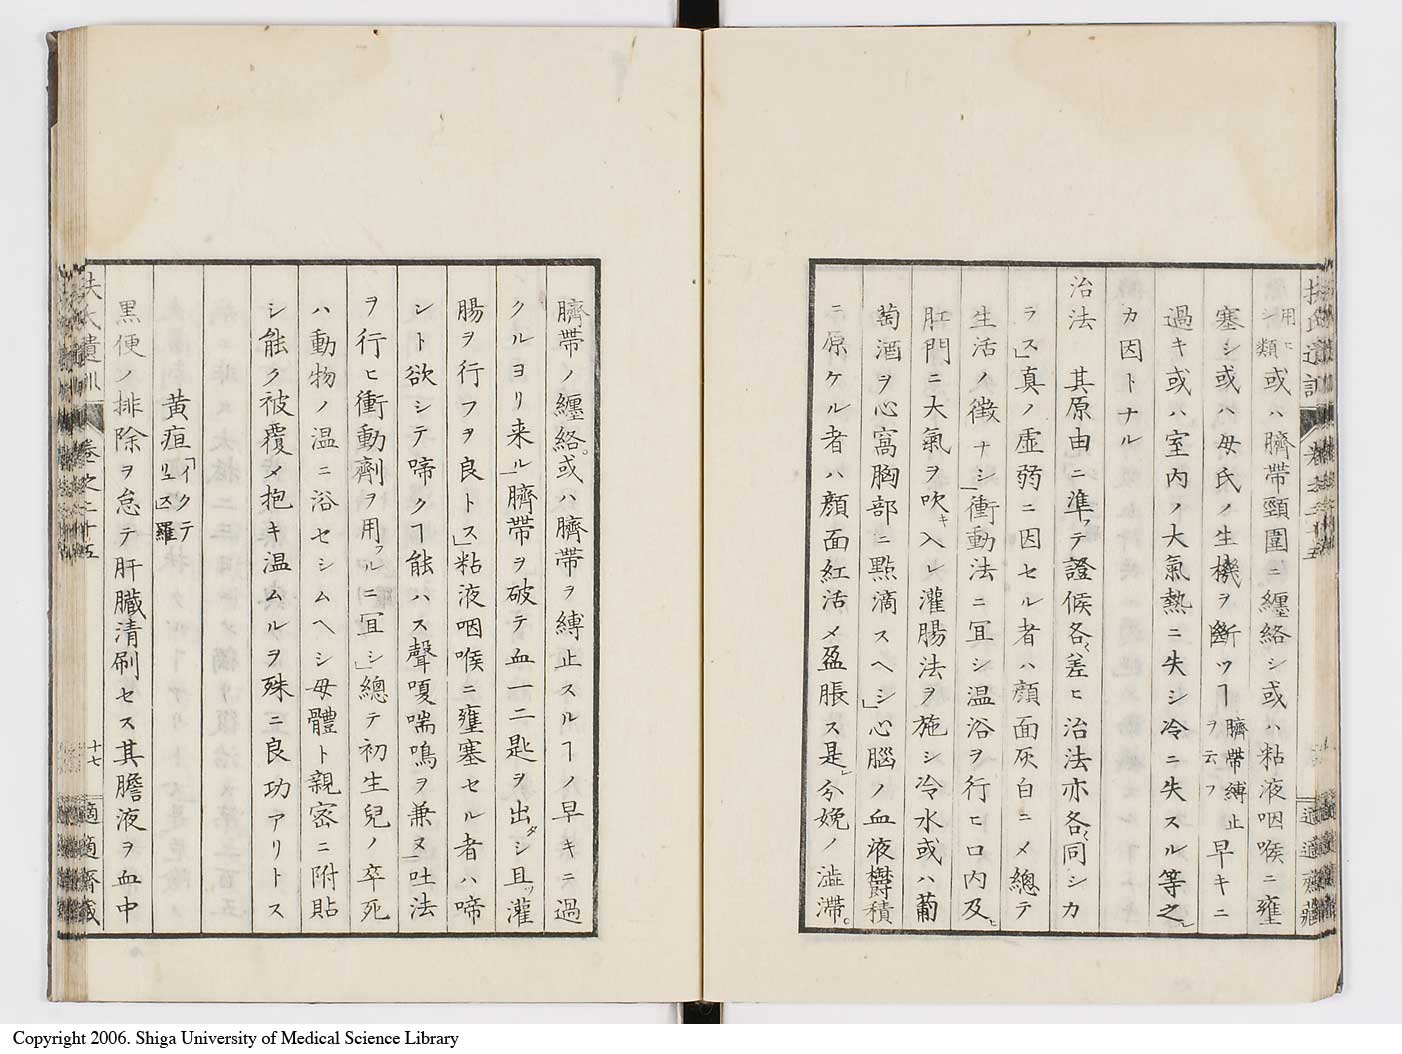 用ヒ
シ類或ハ臍帶頸圍ニ纏絡シ或ハ粘液咽喉ニ壅
塞シ或ハ母氏ノ生機ヲ斷ツヿ臍帶縛止ヲ云フ早キニ
過キ或ハ室内ノ大氣熱ニ失シ冷ニ失スル等之レ
カ因トナル
治法 其原由ニ準ツテ證候各〻差ヒ治法亦各〻同シカ
ラス」真ノ虚弱ニ因セル者ハ顔面灰白ニメ總テ
生活ノ徴ナシ」衝動法ニ冝シ温浴ヲ行ヒ口内及ヒ
肛門ニ大氣ヲ吹キ入レ灌腸法ヲ施シ冷水或ハ葡
萄酒ヲ心窩胸部ニ點滴スヘシ」心腦ノ血液欝積
ニ原ケル者ハ顔面紅活メ盈脹ス是」分娩ノ澁滞。
臍帶ノ纏絡。或ハ臍帶ヲ縛止スルヿノ早キニ過
クルヨリ来ル」臍帶ヲ破テ血一二匙ヲ出タシ且ツ灌
腸ヲ行フヲ良トス」粘液咽喉ニ壅塞セル者ハ啼
シト欲シテ啼クヿ能ハス聲嗄喘鳴ヲ兼ヌ」吐法
ヲ行ヒ衝動劑ヲ用フルニ冝シ」總テ初生兒ノ卒死
ハ動物ノ温ニ浴セシムヘシ母體ト親密ニ附貼
シ能ク被覆メ抱キ温ムルヲ殊ニ良功アリトス
黄疸「イクテリュス」羅
黒便ノ排除ヲ怠テ肝臓清刷セス其膽液ヲ血中
扶氏遺訓 卷之二十五 十七 適適齋藏